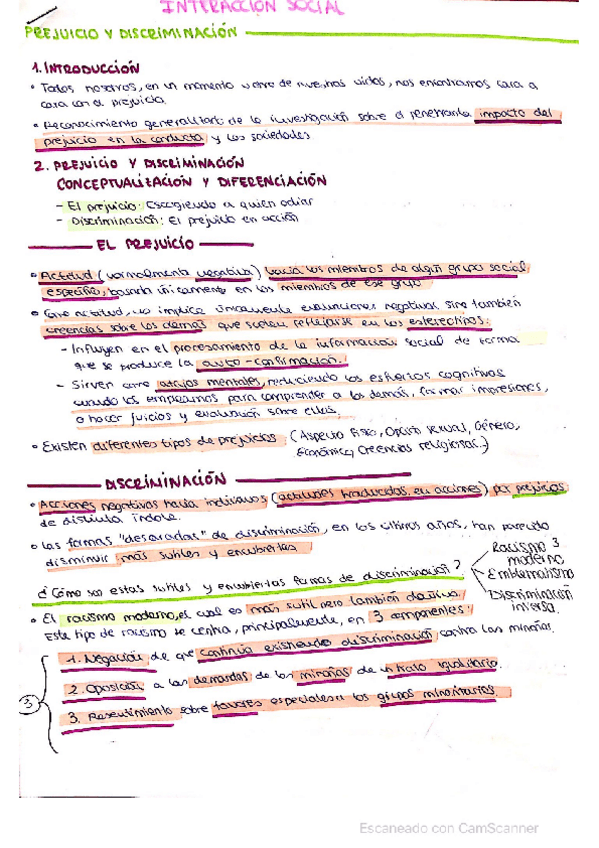 INTERACCIÓN SOCIAL
PREJUICIO Y DISCRIMINACIÓN
1. INTRODUCCIÓN
• Todos nosotros, en un momento u otro de nuestras vidas, nos encontramos cara a
cara con el prejuicio.
• Reconocimiento generalizado de la investigación sobre el penetrante impacto del
prejuicio en la conducta y las sociedades
2. PREJUICIO Y DISCRIMINACIÓN
CONCEPTUALIZACIÓN Y DIFERENCIACIÓN
- El prejuicio: Escogiendo a quien odiar
- Discriminación: El prejuicio en acción
EL PREJUICIO
• Actitud (normalmente negativa) hacia los miembros de algún grupo social
específico, basada únicamente en los miembros de ese grupo
• Como actitud, no implica únicamente evaluaciones negativas, sino también
creencias sobre los demás que suelen reflejarse en los estereotipos:
- Influyen en el procesamiento de la información social de forma
que se produce la auto-confirmación.
- Sirven como atajos mentales, reduciendo los esfuerzos cognitivos
cuando los empleamos para comprender a los demás, formar impresiones,
o hacer juicios y evaluación sobre ellos.
• Existen diferentes tipos de prejuicios (Aspecto físico, Opción sexual, Género,
Económico, Creencias religiosas..)
DISCRIMINACIÓN
• Acciones negativas hacia individuos (actitudes traducidas en acciones) por prejuicios
de distinta índole.
• Las formas "descaradas" de discriminación, en los últimos años, han parecido
disminuir más sutiles y encubiertas
¿Cómo son estas sutiles y encubiertas formas de discriminación?
Racismo moderno
Emblematismo
Discriminación inversa
3
• El racismo moderno, el cual es más sutil pero también dañino.
Este tipo de racismo se centra, principalmente, en 3 componentes:
3
1. Negación de que continúa existiendo discriminación contra las minorías.
2. Oposición a las demandas de las minorías de un trato igualitario.
3. Resentimiento sobre favores especiales a los grupos minoritarios
Escaneado con CamScanner